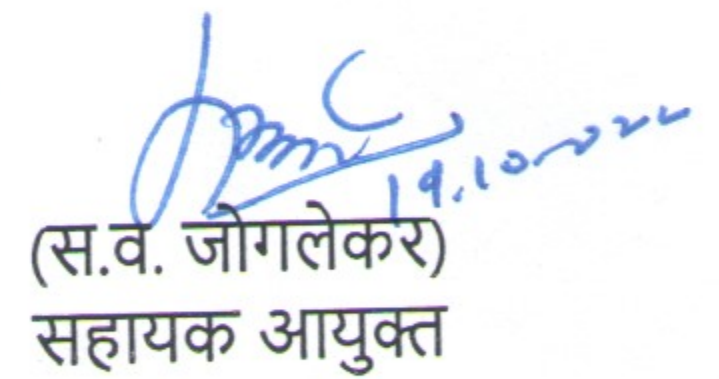 19.10.2022
(स.व. जोगलेकर)
सहायक आयुक्त